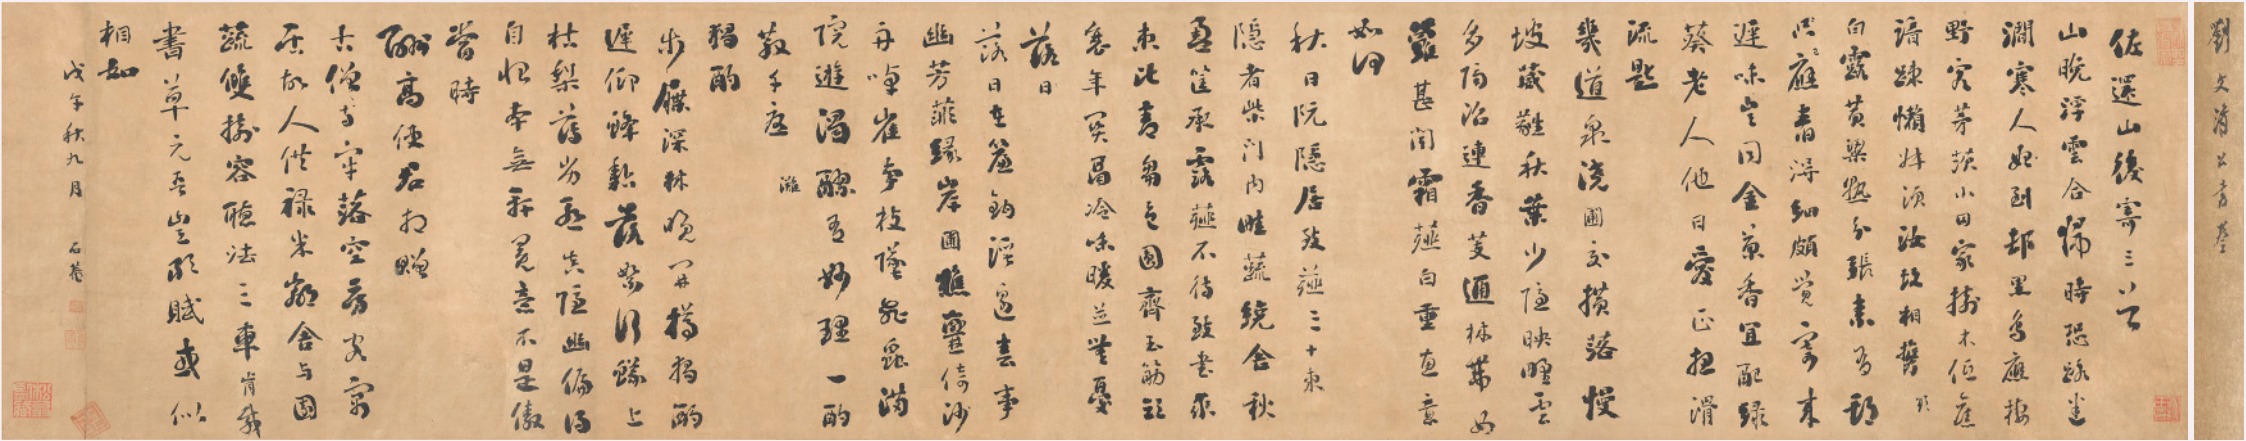 劉文清公書卷
佐還山後寄三首
山晚浮雲合歸時恐路迷
澗寒人欲到邨黑鳥應栖
野客茅茨小田家樹木低舊
諳踈懶叔須汝故相攜
白露黃粱熟分張素有期
已應舂得細頗覺寄來
遲味豈同金菊香宜配綠
葵老人他日愛正想滑
流匙
幾道泉澆圃交橫落慢
坡葳蕤秋葉少隱映野雲
多隔沼連香芰通林帶女
蘿甚聞霜薤白重惠意
如何
秋日阮隱居致薤三十束
隱者柴門內畦蔬繞舍秋
盈筐承露薤不待致書求
束比青芻色圓齊玉筯頭
衰年關鬲冷味暖並無憂
落日
落日在簾鈎溪邊春事
幽芳菲緣岸圃樵爨倚沙
舟啅雀爭枝墜飛蟲滿
院遊濁醪有妙理一酌
散千愁 灘
獨酌
步屧深林晚開樽獨酌
遲仰蜂黏落絮行蟻上
枯梨薄劣慙真隱幽偏得
自怡本無軒冕意不是傲
當時
酬高使君相贈
古僧寺牢落空房客寓
居故人供祿米鄰舍與園
蔬雙樹容聽法三車肯載
書草元吾豈敢賦或似
相如
戊午秋九月 石菴